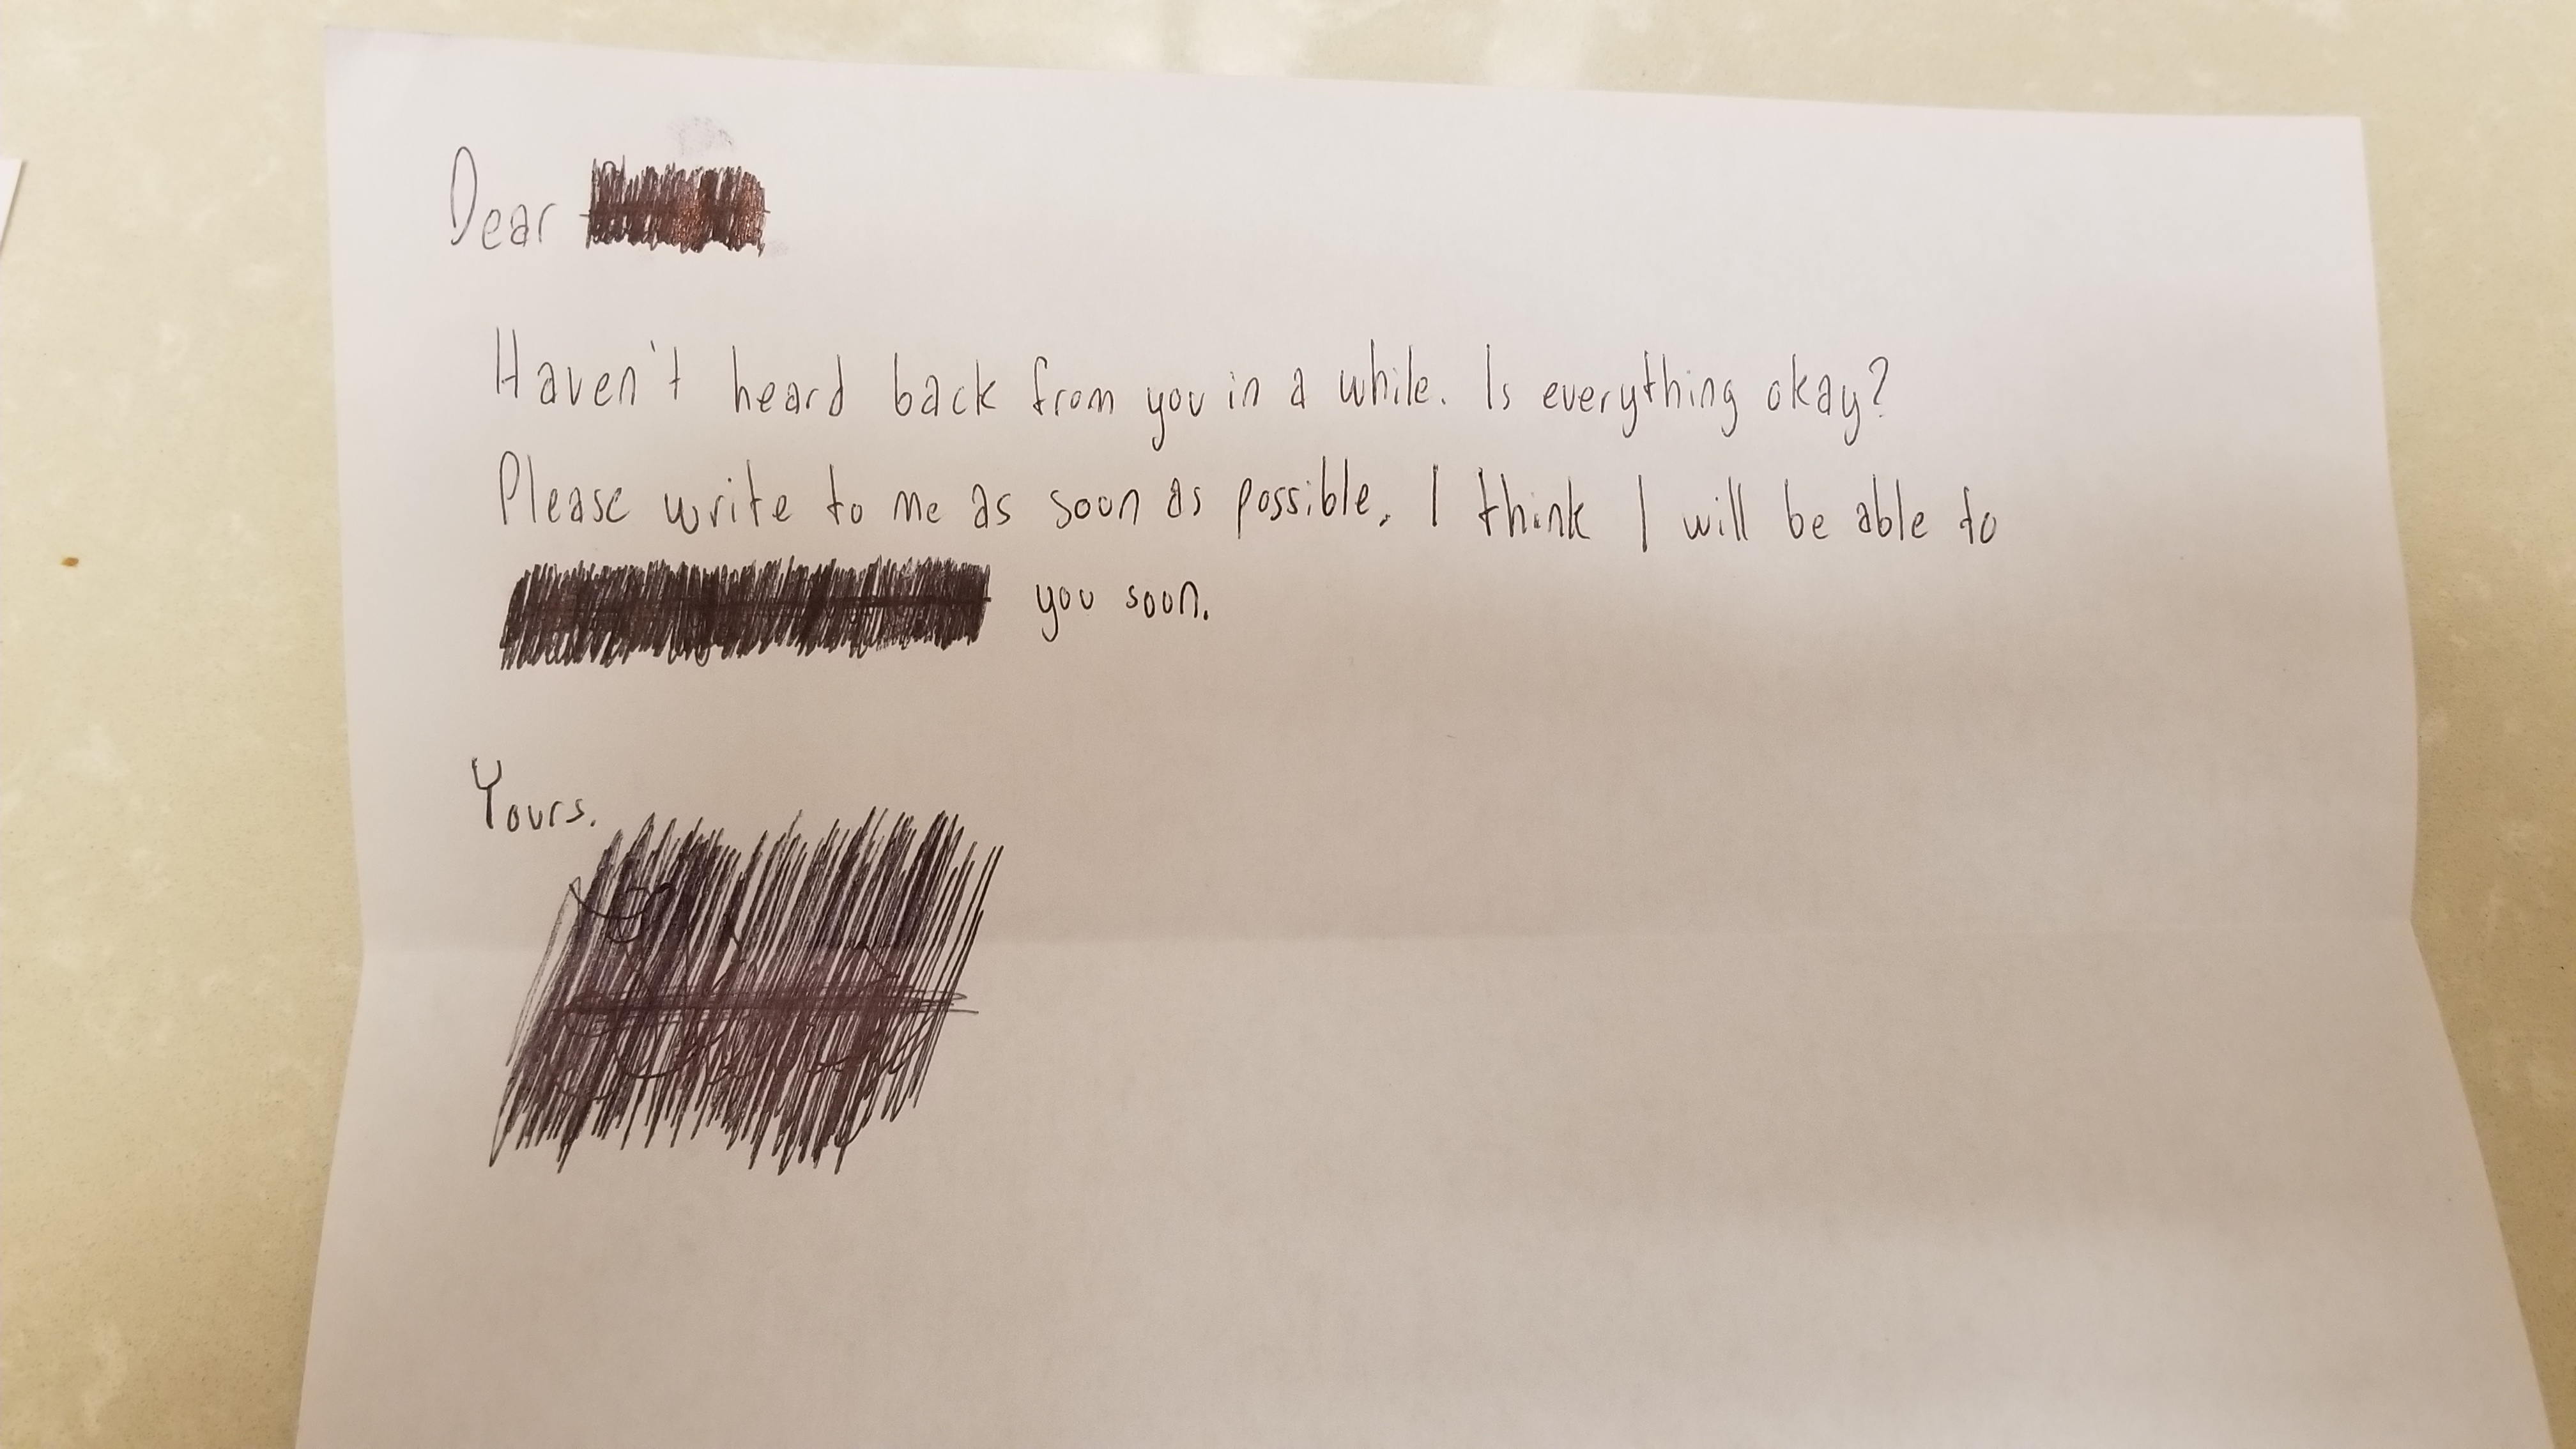 Dear
Haven't heard back from you in a while. Is everything okay?
Please write to me as soon as possible. I think I will be able to
you soon.
Yours.